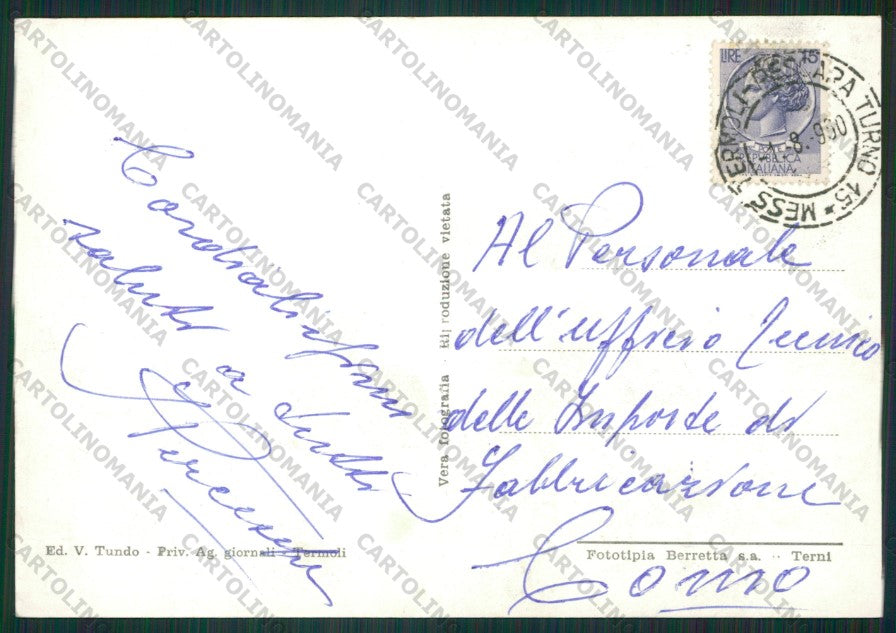 LIRE 15
REPUBBLICA
ITALIANA
MESS TERMOLI-PESCARA TURNO 15 *
-8.-960
Cordialissimi
saluti a tutti
Al Personale
dell'Ufficio Tecnico
delle Imposte di
Fabbricazione
Como
Vera fotografia - Riproduzione vietata
Ed. V. Tundo - Priv. Ag. giornali - Termoli
Fototipia Berretta s.a. - Terni
CARTOLINOMANIA